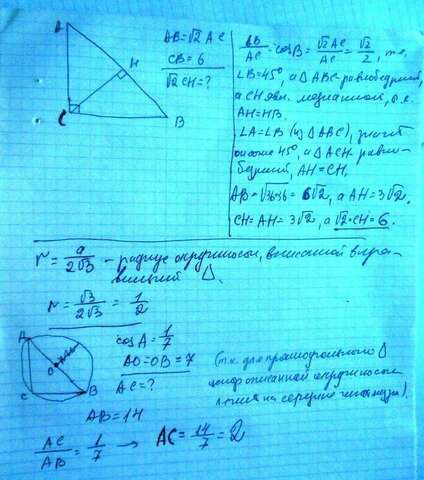 A
H
C
B
AB=√2 AC
CB = 6
√2 CH = ?
AB/AC = cos B = √2 AC/AC = √2/2, т.е.
∠B=45°, а △ABC-равнобедрен.,
а CH явл. медианой, т.е.
AH=HB.
∠A=∠B (из △ABC), значит
45°, а △ACH равно-
бедрен., AH=CH.
AB = √36+36 = 6√2, а AH=3√2.
CH=AH=3√2, а √2·CH=6.
r = a/2√3 - радиус окружности, вписанной в пра-
вильный △.
r = √3/2√3 = 1/2
A
O
C
B
cos A = 1/7
AO=OB=7
AC=?
(т.к. для прямоугольного △
центр описанной окружности
лежит на середине гипотенузы).
AB=14
AC/AB = 1/7 → AC = 14/7 = 2